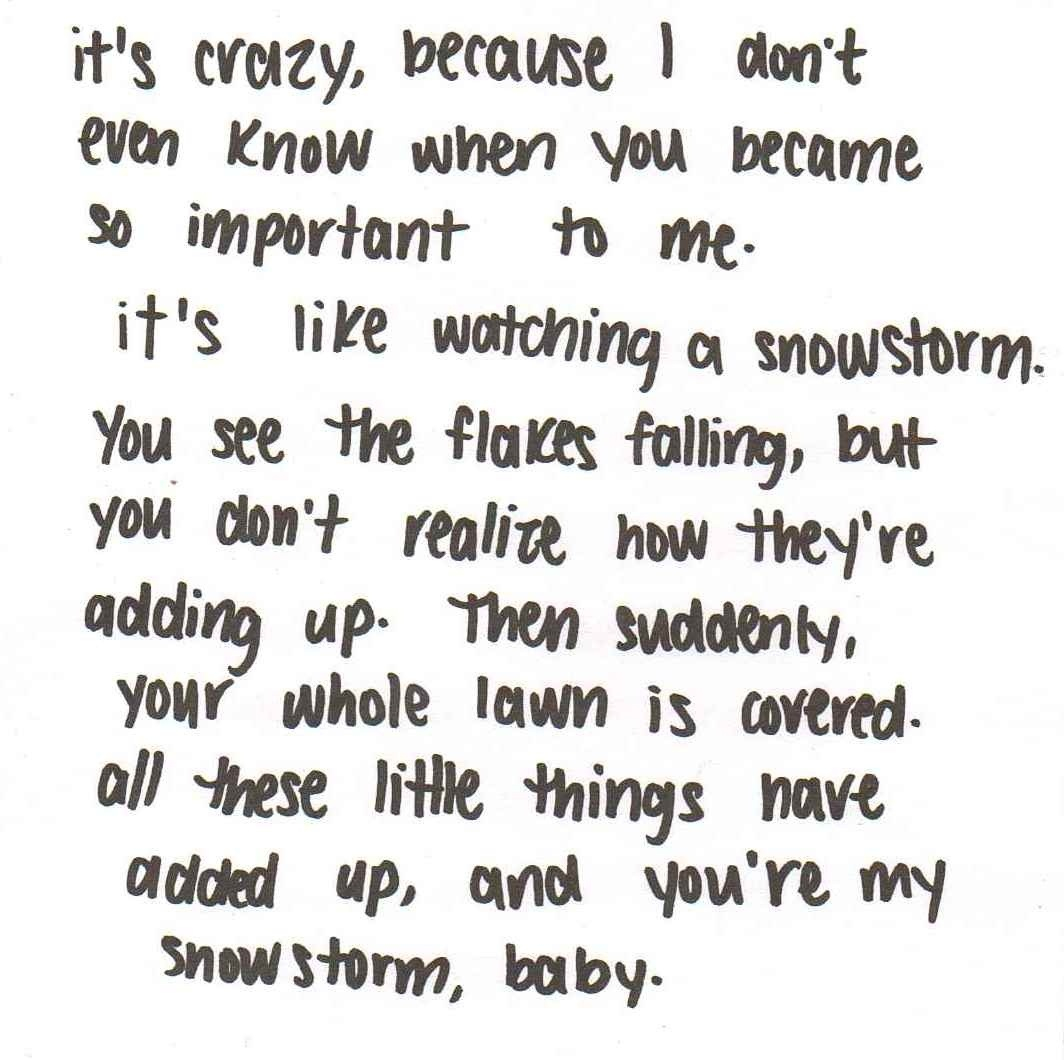 it's crazy, because I don't
even know when you became
so important to me.
it's like watching a snowstorm.
You see the flakes falling, but
you don't realize how they're
adding up. Then suddenly,
your whole lawn is covered.
all these little things have
added up, and you're my
snowstorm, baby.